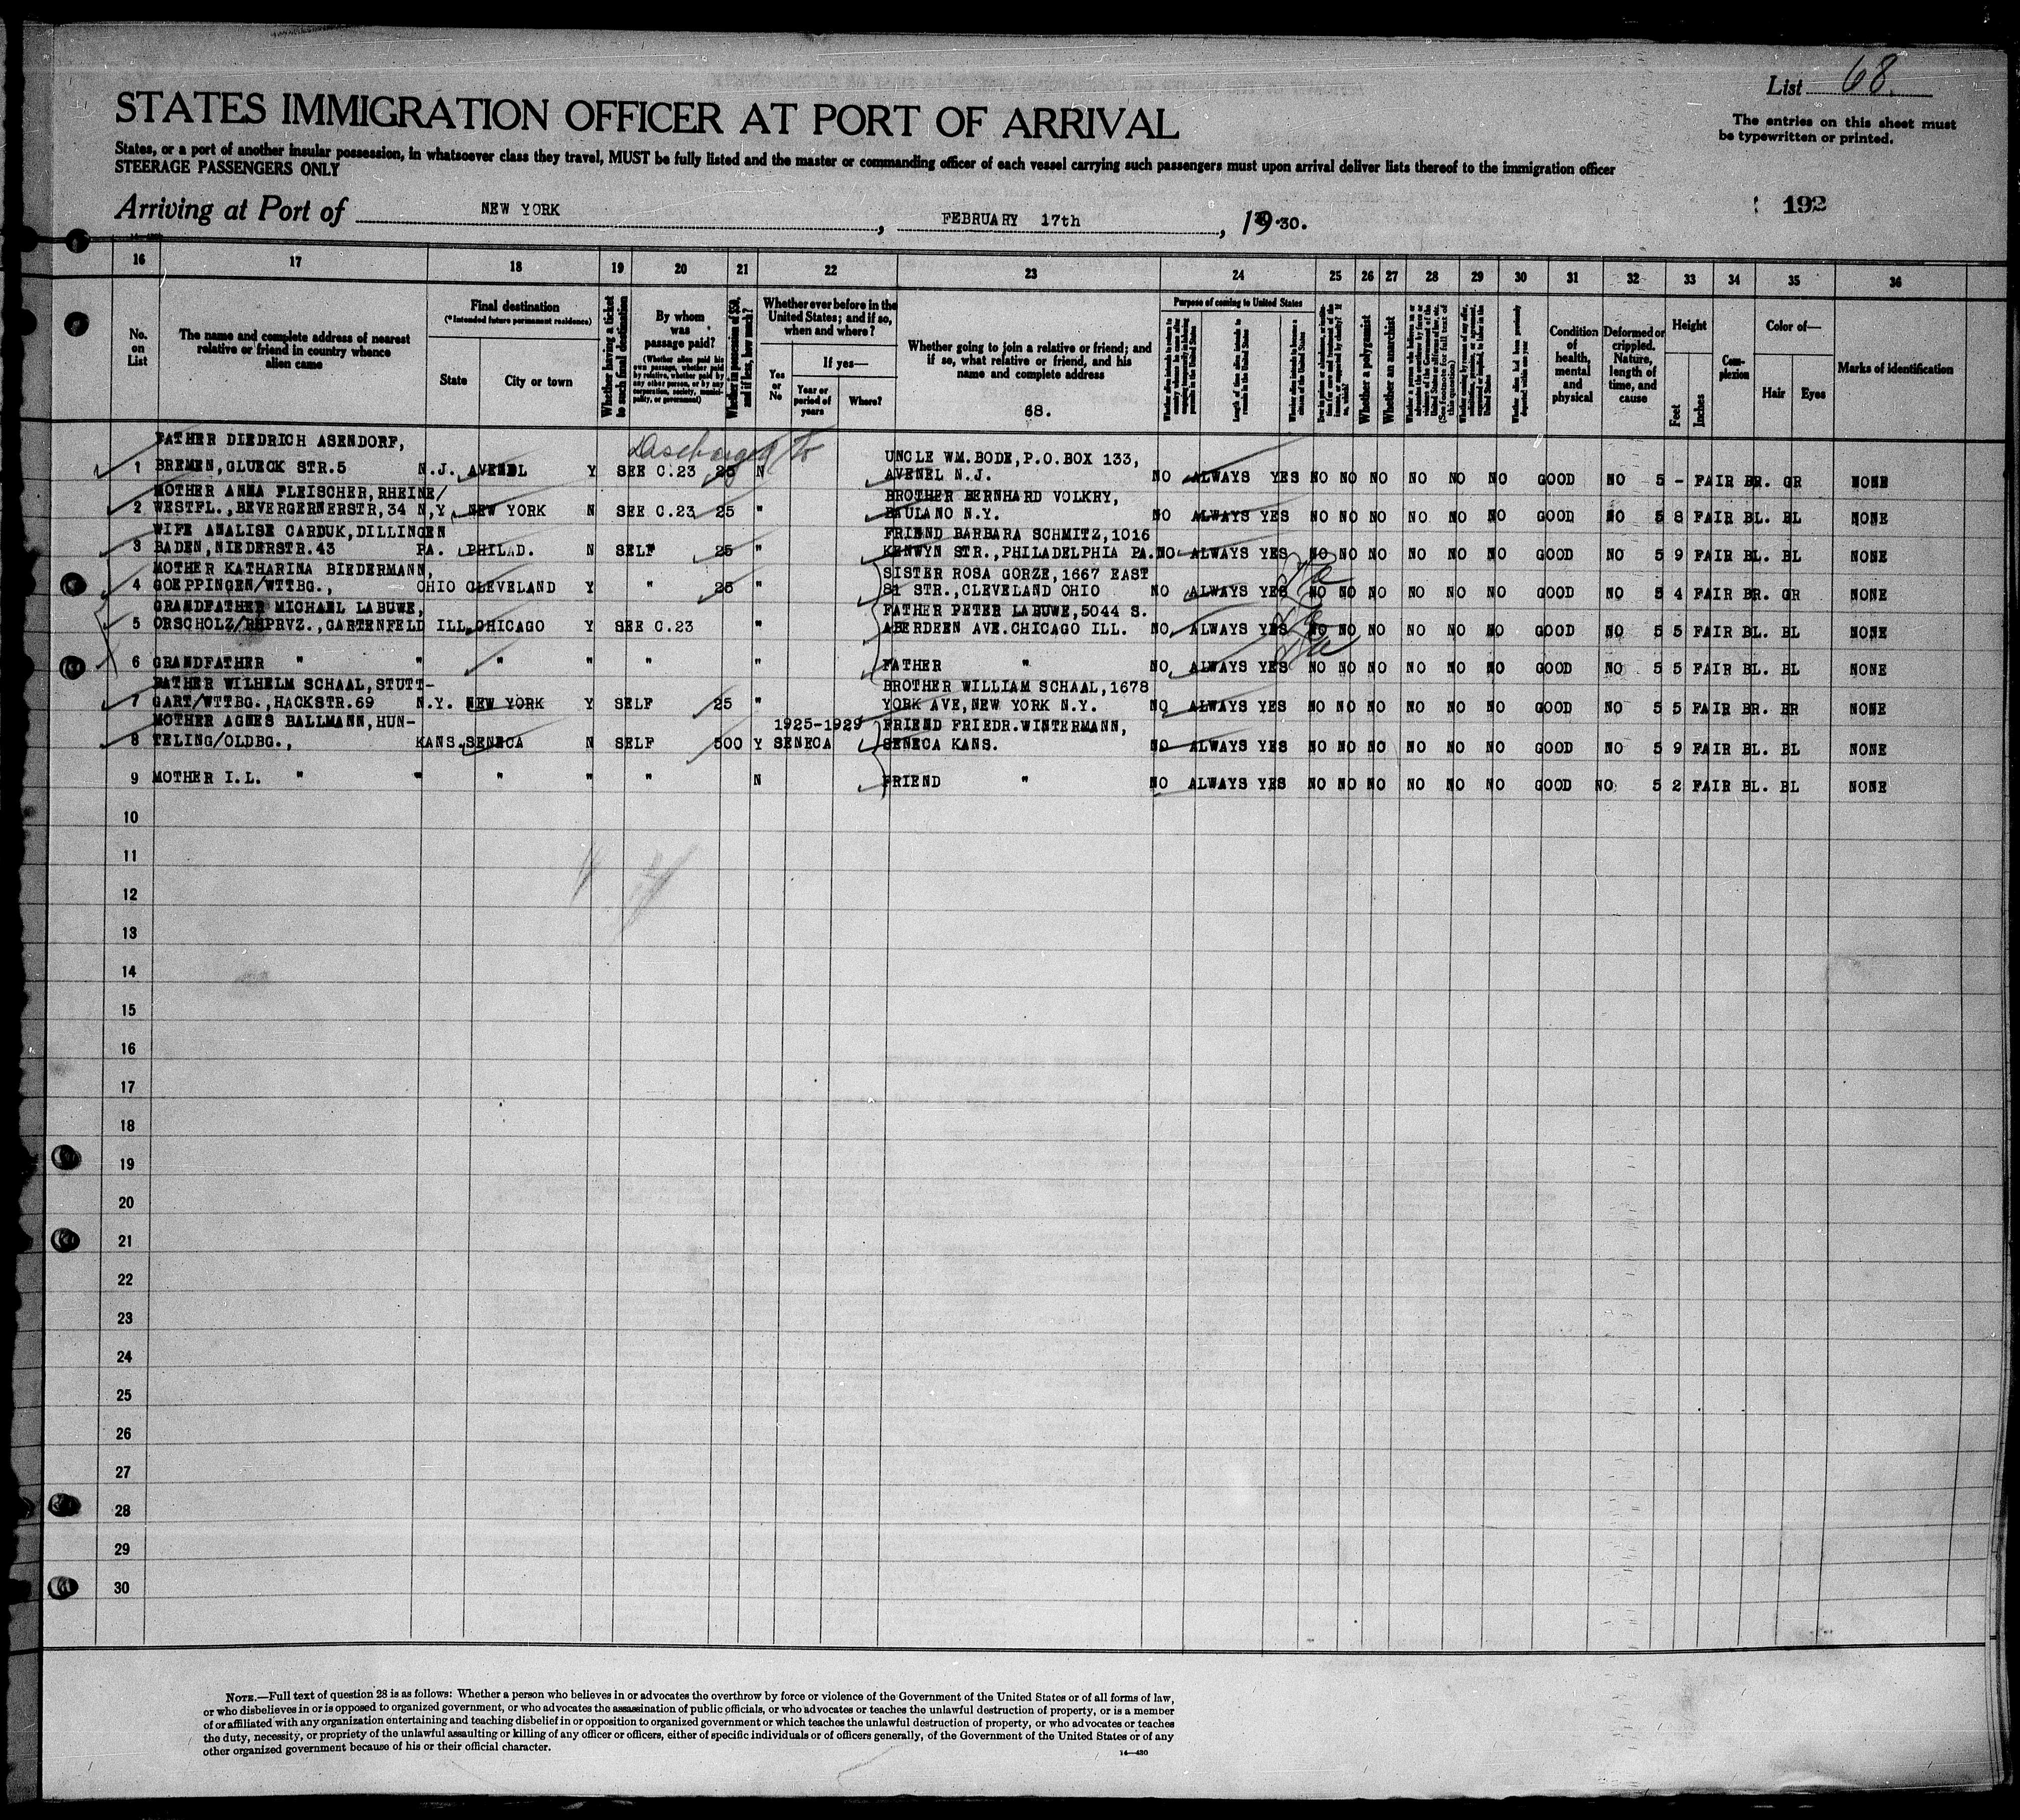 List 68.
STATES IMMIGRATION OFFICER AT PORT OF ARRIVAL
The entries on this sheet must
be typewritten or printed.
States, or a port of another insular possession, in whatsoever class they travel, MUST be fully listed and the master or commanding officer of each vessel carrying such passengers must upon arrival deliver lists thereof to the immigration officer
STEERAGE PASSENGERS ONLY
Arriving at Port of NEW YORK, FEBRUARY 17th, 19.30.
192
16 17 18 19 20 21 22 23 24 25 26 27 28 29 30 31 32 33 34 35 36
No. on List
The name and complete address of nearest relative or friend in country whence alien came
Final destination
(*Intended future permanent residence)
State
City or town
Whether having a ticket to such final destination
By whom was passage paid?
(Whether alien paid his own passage, whether paid by relative, whether paid by any other person, or by any corporation, society, municipality, or government)
Whether in possession of $50, and if less, how much?
Whether ever before in the United States; and if so, when and where?
Yes or No
If yes—
Year or period of years
Where?
Whether going to join a relative or friend; and if so, what relative or friend, and his name and complete address
68.
Purpose of coming to United States
Length of time alien intends to remain in the United States
Whether a polygamist
Whether an anarchist
Condition of health, mental and physical
Deformed or crippled. Nature, length of time, and cause
Height
Feet
Inches
Complexion
Color of—
Hair
Eyes
Marks of identification
Discharged to
FATHER DIEDRICH ASENDORF, UNCLE WM.BODE,P.O.BOX 133,
1 BREMEN,GLUECK STR.5 N.J. AVENEL Y SEE C.23 25 N AVENEL N.J. NO ALWAYS YES NO NO NO NO NO NO GOOD NO 5 - FAIR BR. GR NONE
MOTHER ANNA FLEISCHER,RHEINE/ BROTHER BERNHARD VOLKRY,
2 WESTFL.,BEVERGERNERSTR,34 N,Y. NEW YORK N SEE C.23 25 " PAULANO N.Y. NO ALWAYS YES NO NO NO NO NO NO GOOD NO 5 8 FAIR BL. BL NONE
WIFE ANALISE CARDUK,DILLINGEN FRIEND BARBARA SCHMITZ,1016
3 BADEN,NIEDERSTR.43 PA. PHILAD. N SELF 25 " KENWYN STR.,PHILADELPHIA PA. NO ALWAYS YES NO NO NO NO NO NO GOOD NO 5 9 FAIR BL. BL NONE
MOTHER KATHARINA BIEDERMANN, SISTER ROSA GORZE,1667 EAST
4 GOEPPINGEN/WTTBG., OHIO CLEVELAND Y " 25 " 81 STR.,CLEVELAND OHIO NO ALWAYS YES NO NO NO NO NO NO GOOD NO 5 4 FAIR BR. GR NONE
GRANDFATHER MICHAEL LABUWE, FATHER PETER LABUWE,5044 S.
5 ORSCHOLZ/RHPRVZ.,GARTENFELD ILL. CHICAGO Y SEE C.23 " ABERDEEN AVE.CHICAGO ILL. NO ALWAYS YES NO NO NO NO NO NO GOOD NO 5 5 FAIR BL. BL NONE
6 GRANDFATHER " " " " " " FATHER " NO ALWAYS YES NO NO NO NO NO NO GOOD NO 5 5 FAIR BL. BL NONE
FATHER WILHELM SCHAAL,STUTT- BROTHER WILLIAM SCHAAL,1678
7 GART/WTTBG.,HACKSTR.69 N.Y. NEW YORK Y SELF 25 " YORK AVE,NEW YORK N.Y. NO ALWAYS YES NO NO NO NO NO NO GOOD NO 5 5 FAIR BR. BR NONE
MOTHER AGNES BALLMANN,HUN- 1925-1929 FRIEND FRIEDR.WINTERMANN,
8 TELING/OLDBG., KANS. SENECA N SELF 500 Y SENECA SENECA KANS. NO ALWAYS YES NO NO NO NO NO NO GOOD NO 5 9 FAIR BL. BL NONE
9 MOTHER I.L. " " " " " N FRIEND " NO ALWAYS YES NO NO NO NO NO NO GOOD NO 5 2 FAIR BL. BL NONE
10
11
12
13
14
15
16
17
18
19
20
21
22
23
24
25
26
27
28
29
30
NOTE.—Full text of question 28 is as follows: Whether a person who believes in or advocates the overthrow by force or violence of the Government of the United States or of all forms of law,
or who disbelieves in or is opposed to organized government, or who advocates the assassination of public officials, or who advocates or teaches the unlawful destruction of property, or is a member
of or affiliated with any organization entertaining and teaching disbelief in or opposition to organized government or which teaches the unlawful destruction of property, or who advocates or teaches
the duty, necessity, or propriety of the unlawful assaulting or killing of any officer or officers, either of specific individuals or of officers generally, of the Government of the United States or of any
other organized government because of his or their official character.
14—430